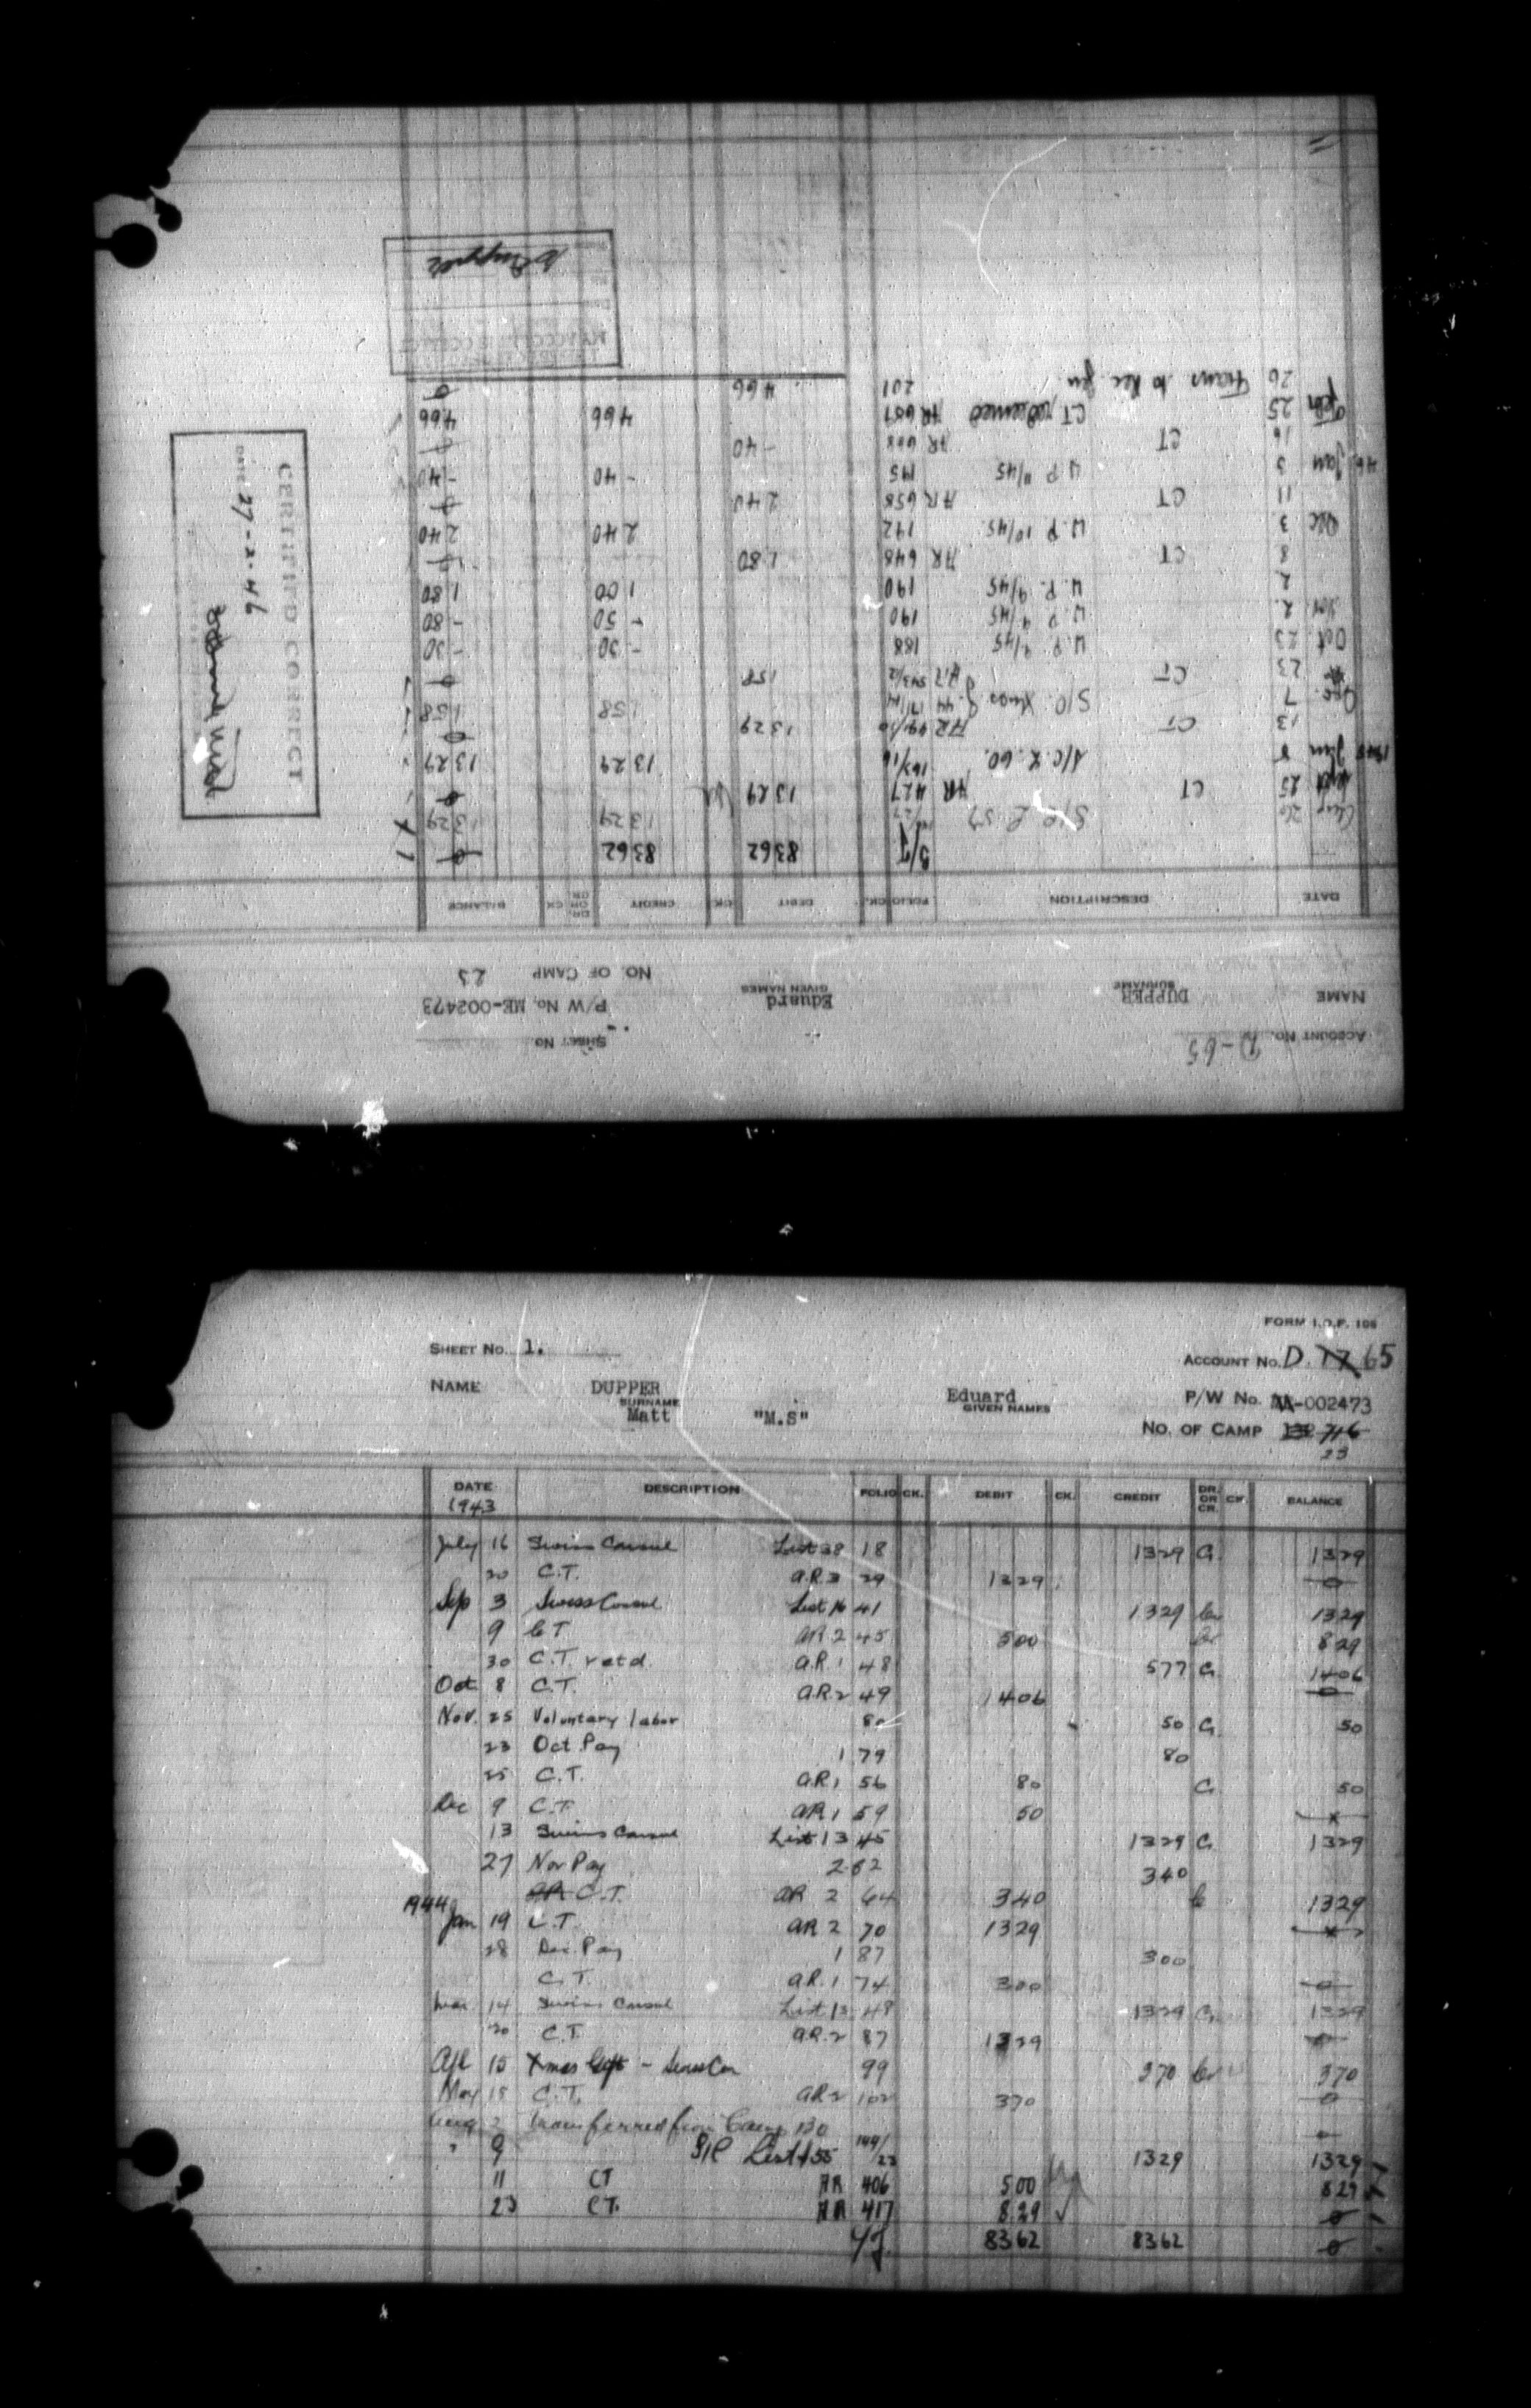 ACCOUNT No. D-65
SHEET No.
NAME DUPPER Eduard P/W No. ME-002473
SURNAME GIVEN NAMES
NO. OF CAMP 23
DATE DESCRIPTION FOLIO CK. DEBIT CK. CREDIT DR. OR CR. CK. BALANCE
B/F 8362 8362 0
26 S/C L 57 1329 1329
Sept 25 CT AR 427 1329 0
Jan 8 S/C L 60. 163/16 1329 1329
13 CT AR 1329 0
Dec. 7 S/C Xmas 44 158 158
23 CT 158 0
Oct 23 W.P. 9/45 188 - 30 - 30
Nov 2 W.P. 9/45 190 - 50 - 80
2 W.P. 9/45 190 1 00 1 80
8 CT AR 648 1 80
Dec 3 W.P. 10/45 192 2 40 2 40
11 CT AR 658 2 40
46 Jan 3 W.P. 11/45 195 - 40 - 40
16 CT AR 668 - 40
Feb 25 CT redeemed AR 687 466 466
26 Trans to Rec Gen 201 466 0
E Dupper
CERTIFIED CORRECT
DATE 27-2-46
FORM I.O.P. 106
SHEET No. 1. ACCOUNT No. D. 17 65
NAME DUPPER Eduard P/W No. M-002473
SURNAME GIVEN NAMES
Matt "M.S"
NO. OF CAMP 132 716
23
DATE DESCRIPTION FOLIO CK. DEBIT CK. CREDIT DR. OR CR. CK. BALANCE
1943
July 16 Swiss Consul List 38 18 1329 Cr 1329
20 C.T. A.R. 3 29 1329 0
Sep 3 Swiss Consul List 16 41 1329 Cr 1329
9 C T AR 2 45 500 Cr 829
30 C.T. retd. A.R. 1 48 577 Cr 1406
Oct 8 C.T. A.R. 2 49 1406 0
Nov. 25 Voluntary labor 80 50 Cr 50
23 Oct Pay 1 79 80
25 C.T. A.R. 1 56 80 Cr 50
Dec 9 C.T. AR 1 59 50
13 Swiss Consul List 13 45 1329 Cr 1329
27 Nov Pay 2 82 340
AR C.T. AR 2 64 340 Cr 1329
1944 Jan 19 C.T. AR 2 70 1329
28 Dec. Pay 1 87 300
C.T. A.R. 1 74 300 0
Mar 14 Swiss Consul List 13 48 1329 Cr 1329
20 C.T. A.R. 2 87 1329 0
Apl 15 Xmas Gift - Swiss Con 99 370 Cr 370
May 18 C.T. A.R 2 102 370 0
Aug 2 Transferred from Camp 130
" 9 S/C List #55 149/23 1329 1329
11 CT AR 406 500 829
23 CT. AR 417 829 0
8362 8362 0